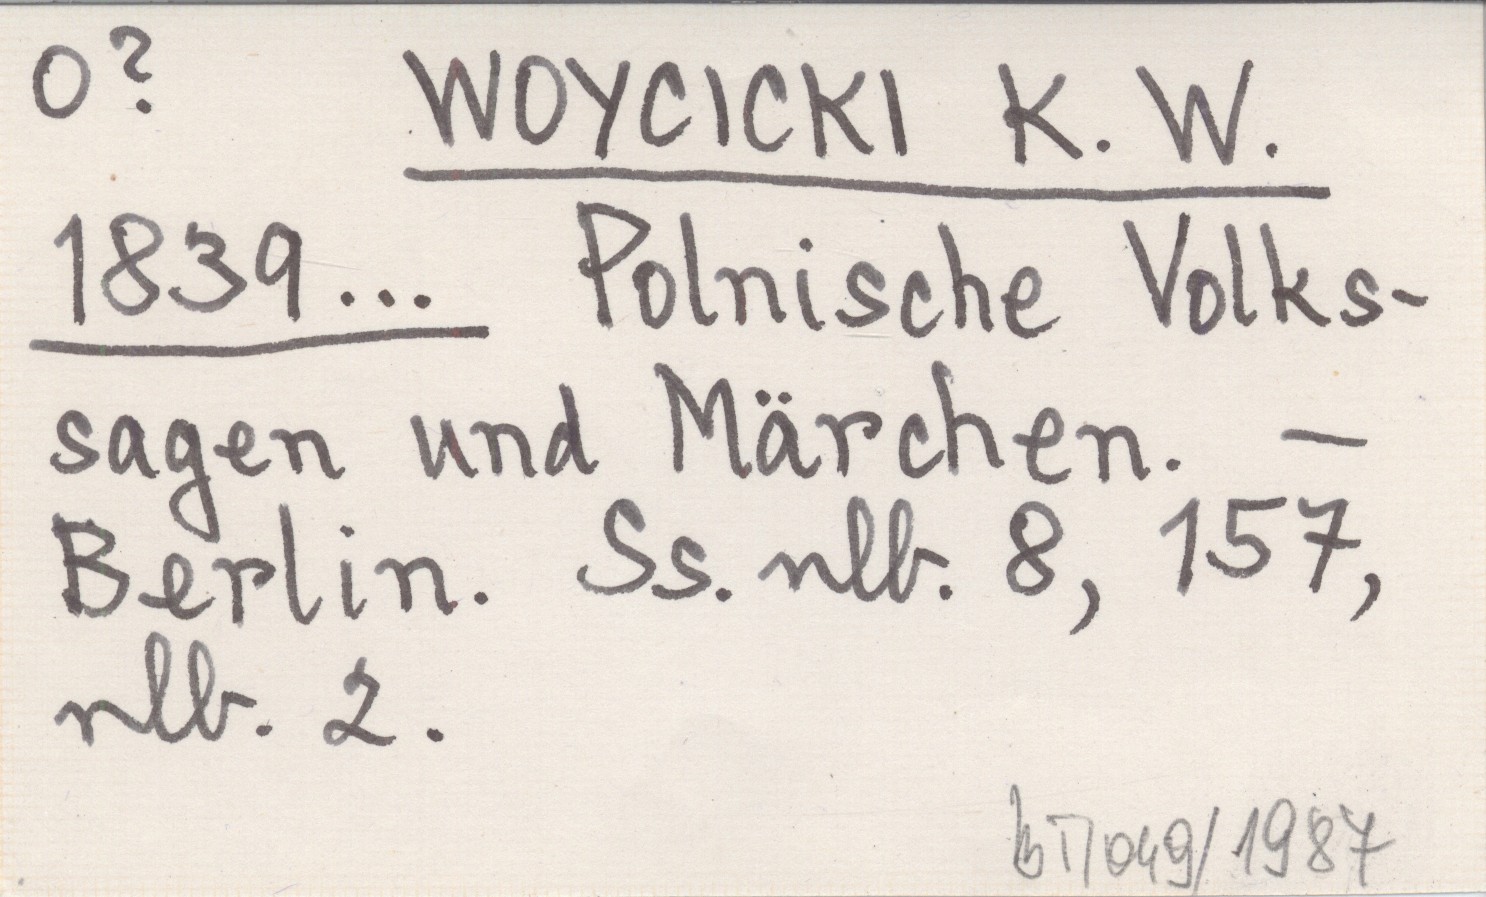 O? WOYCICKI K. W.
1839... Polnische Volks-
sagen und Märchen. —
Berlin. Ss. nlb. 8, 157,
nlb. 2.
049/1987